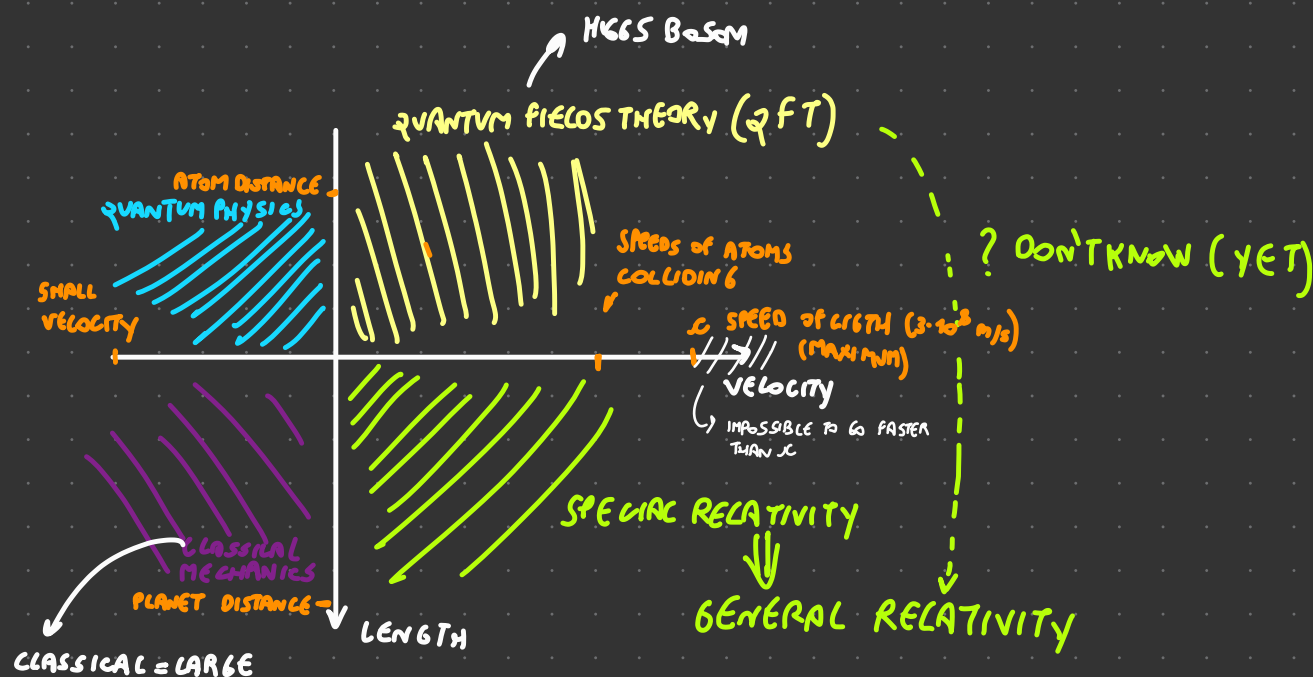 HIGGS BOSOM
QUANTUM FIELDS THEORY (QFT)
ATOM DISTANCE
QUANTUM PHYSICS
SPEEDS OF ATOMS
COLLIDING
? DON'T KNOW (YET)
SMALL
VELOCITY
C SPEED OF LIGTH (3·10⁸ m/s)
(MAXIMUM)
VELOCITY
IMPOSSIBLE TO GO FASTER
THAN C
SPECIAL RELATIVITY
CLASSICAL
MECHANICS
PLANET DISTANCE
GENERAL RELATIVITY
LENGTH
CLASSICAL = LARGE